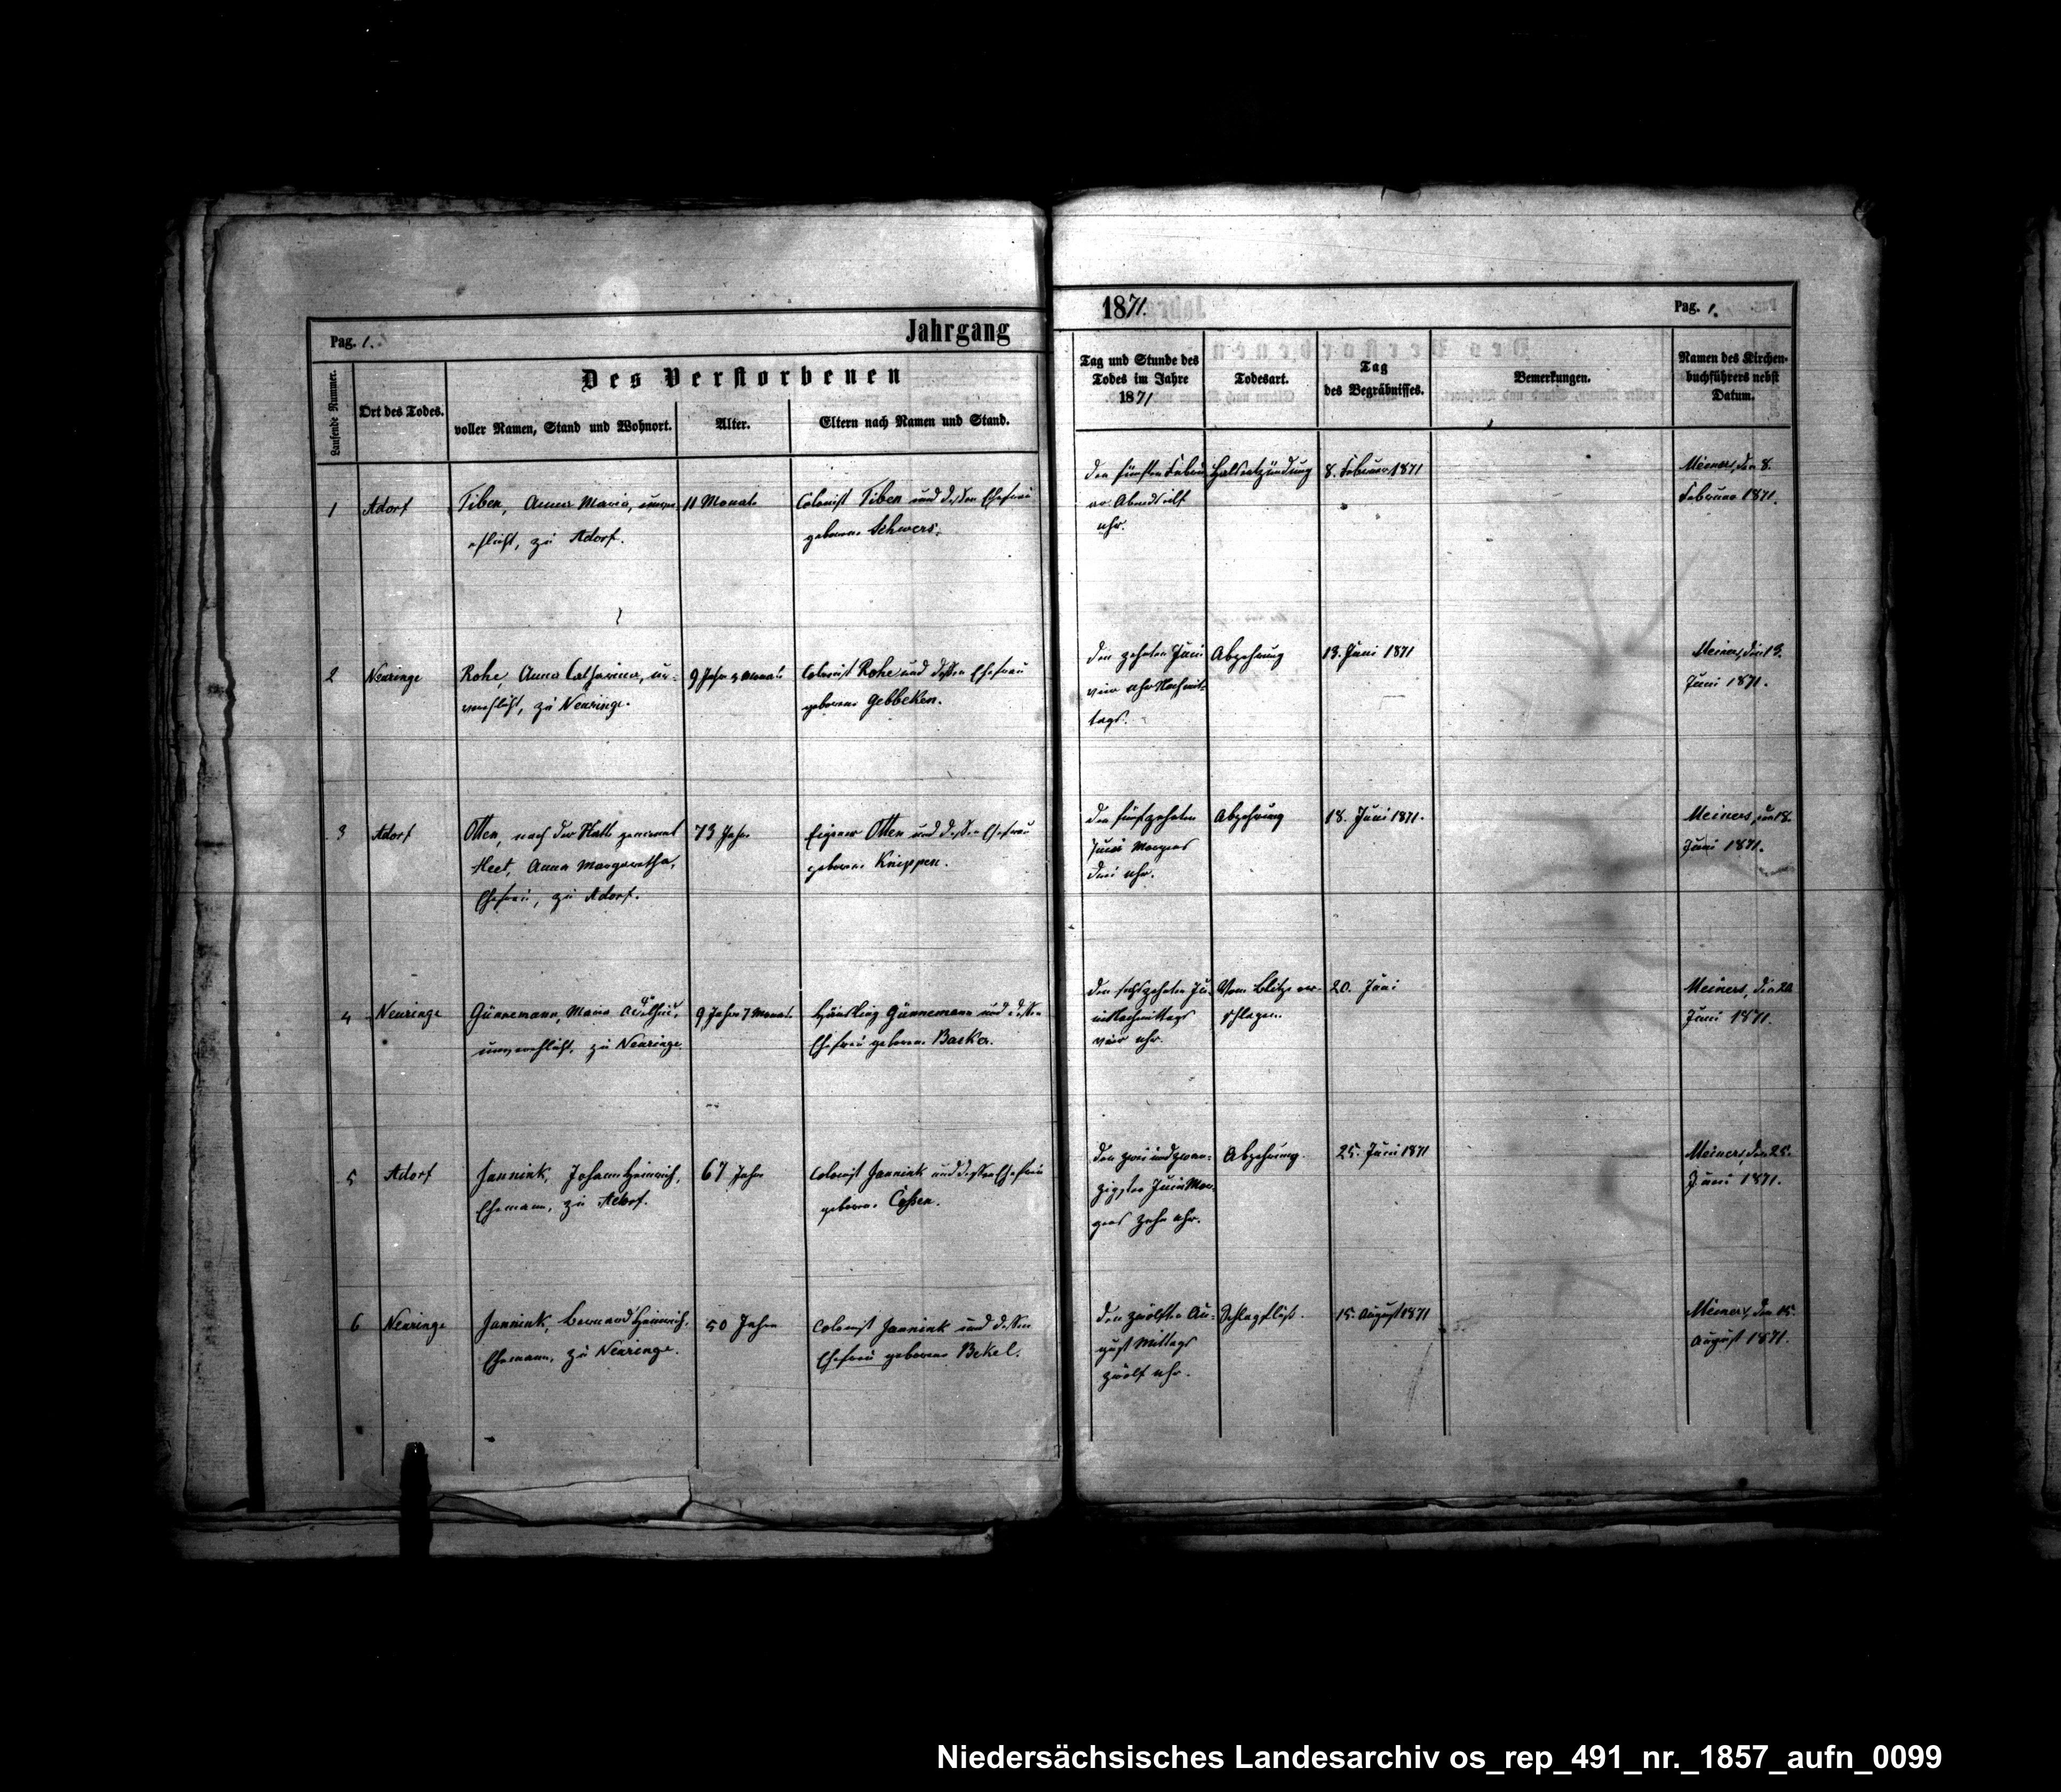 Pag. 1.
Jahrgang
1871.
Pag. 1.
Laufende Nummer.
Ort des Todes.
Des Verstorbenen
voller Namen, Stand und Wohnort.
Alter.
Eltern nach Namen und Stand.
Tag und Stunde des
Todes im Jahre
1871
Todesart.
Tag
des Begräbnisses.
Bemerkungen.
Namen des Kirchen-
buchführers nebst
Datum.
1
Adorf
Tiben, Anna Maria, unver-
ehlicht, zu Adorf.
11 Monate
Colonist Tiben und dessen Ehefrau
geborene Schwers.
den fünften Febru-
ar Abends elf
Uhr.
Halsentzündung
8. Februar 1871
Meiners, den 8.
Februar 1871.
2
Neuringe
Rohe, Anna Catharina, un-
verehlicht, zu Neuringe.
9 Jahr 9 Monate
Colonist Rohe und dessen Ehefrau
geborene Gebbeken.
den zehnten Juni
vier Uhr Nachmit-
tags.
Abzehrung
13. Juni 1871
Meiners, den 13.
Juni 1871.
3
Adorf
Otten, nach der Stätte genannt
Heet, Anna Margaretha,
Ehefrau, zu Adorf.
73 Jahre
Eigener Otten und dessen Ehefrau
geborene Knippen.
den fünfzehnten
Juni Morgens
drei Uhr.
Abzehrung
18. Juni 1871.
Meiners, den 18.
Juni 1871.
4
Neuringe
Günnemann, Maria Adelheid,
unverehlicht, zu Neuringe.
9 Jahre 7 Monate
Häusling Günnemann und dessen
Ehefrau geborene Backer.
den sechszehnten Ju-
ni Nachmittags
vier Uhr.
Vom Blitze er-
schlagen.
20. Juni
Meiners, den 20
Juni 1871.
5
Adorf
Jannink, Johann Heinrich,
Ehemann, zu Adorf.
67 Jahre
Colonist Jannink und dessen Ehefrau
geborene Coßen.
den zweiundzwan-
zigsten Juni Mor-
gens zehn Uhr.
Abzehrung.
25. Juni 1871
Meiners, den 25.
Juni 1871.
6
Neuringe
Jannink, Bernard Heinrich,
Ehemann, zu Neuringe.
50 Jahre
Colonist Jannink und dessen
Ehefrau geborene Bekel.
den zwölften Au-
gust Mittags
zwölf Uhr.
Schlagfluß.
15. August 1871
Meiners, den 15.
August 1871.
Niedersächsisches Landesarchiv os_rep_491_nr._1857_aufn_0099